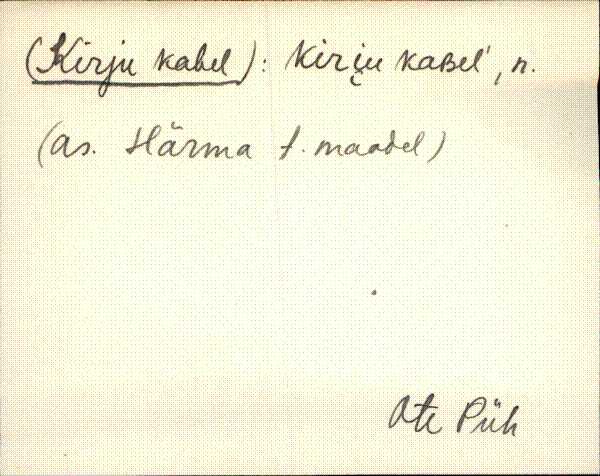 (Kirju kabel): kiri̯u kaʙel', n.
(as. Härma t. maadel)
Ote Püh